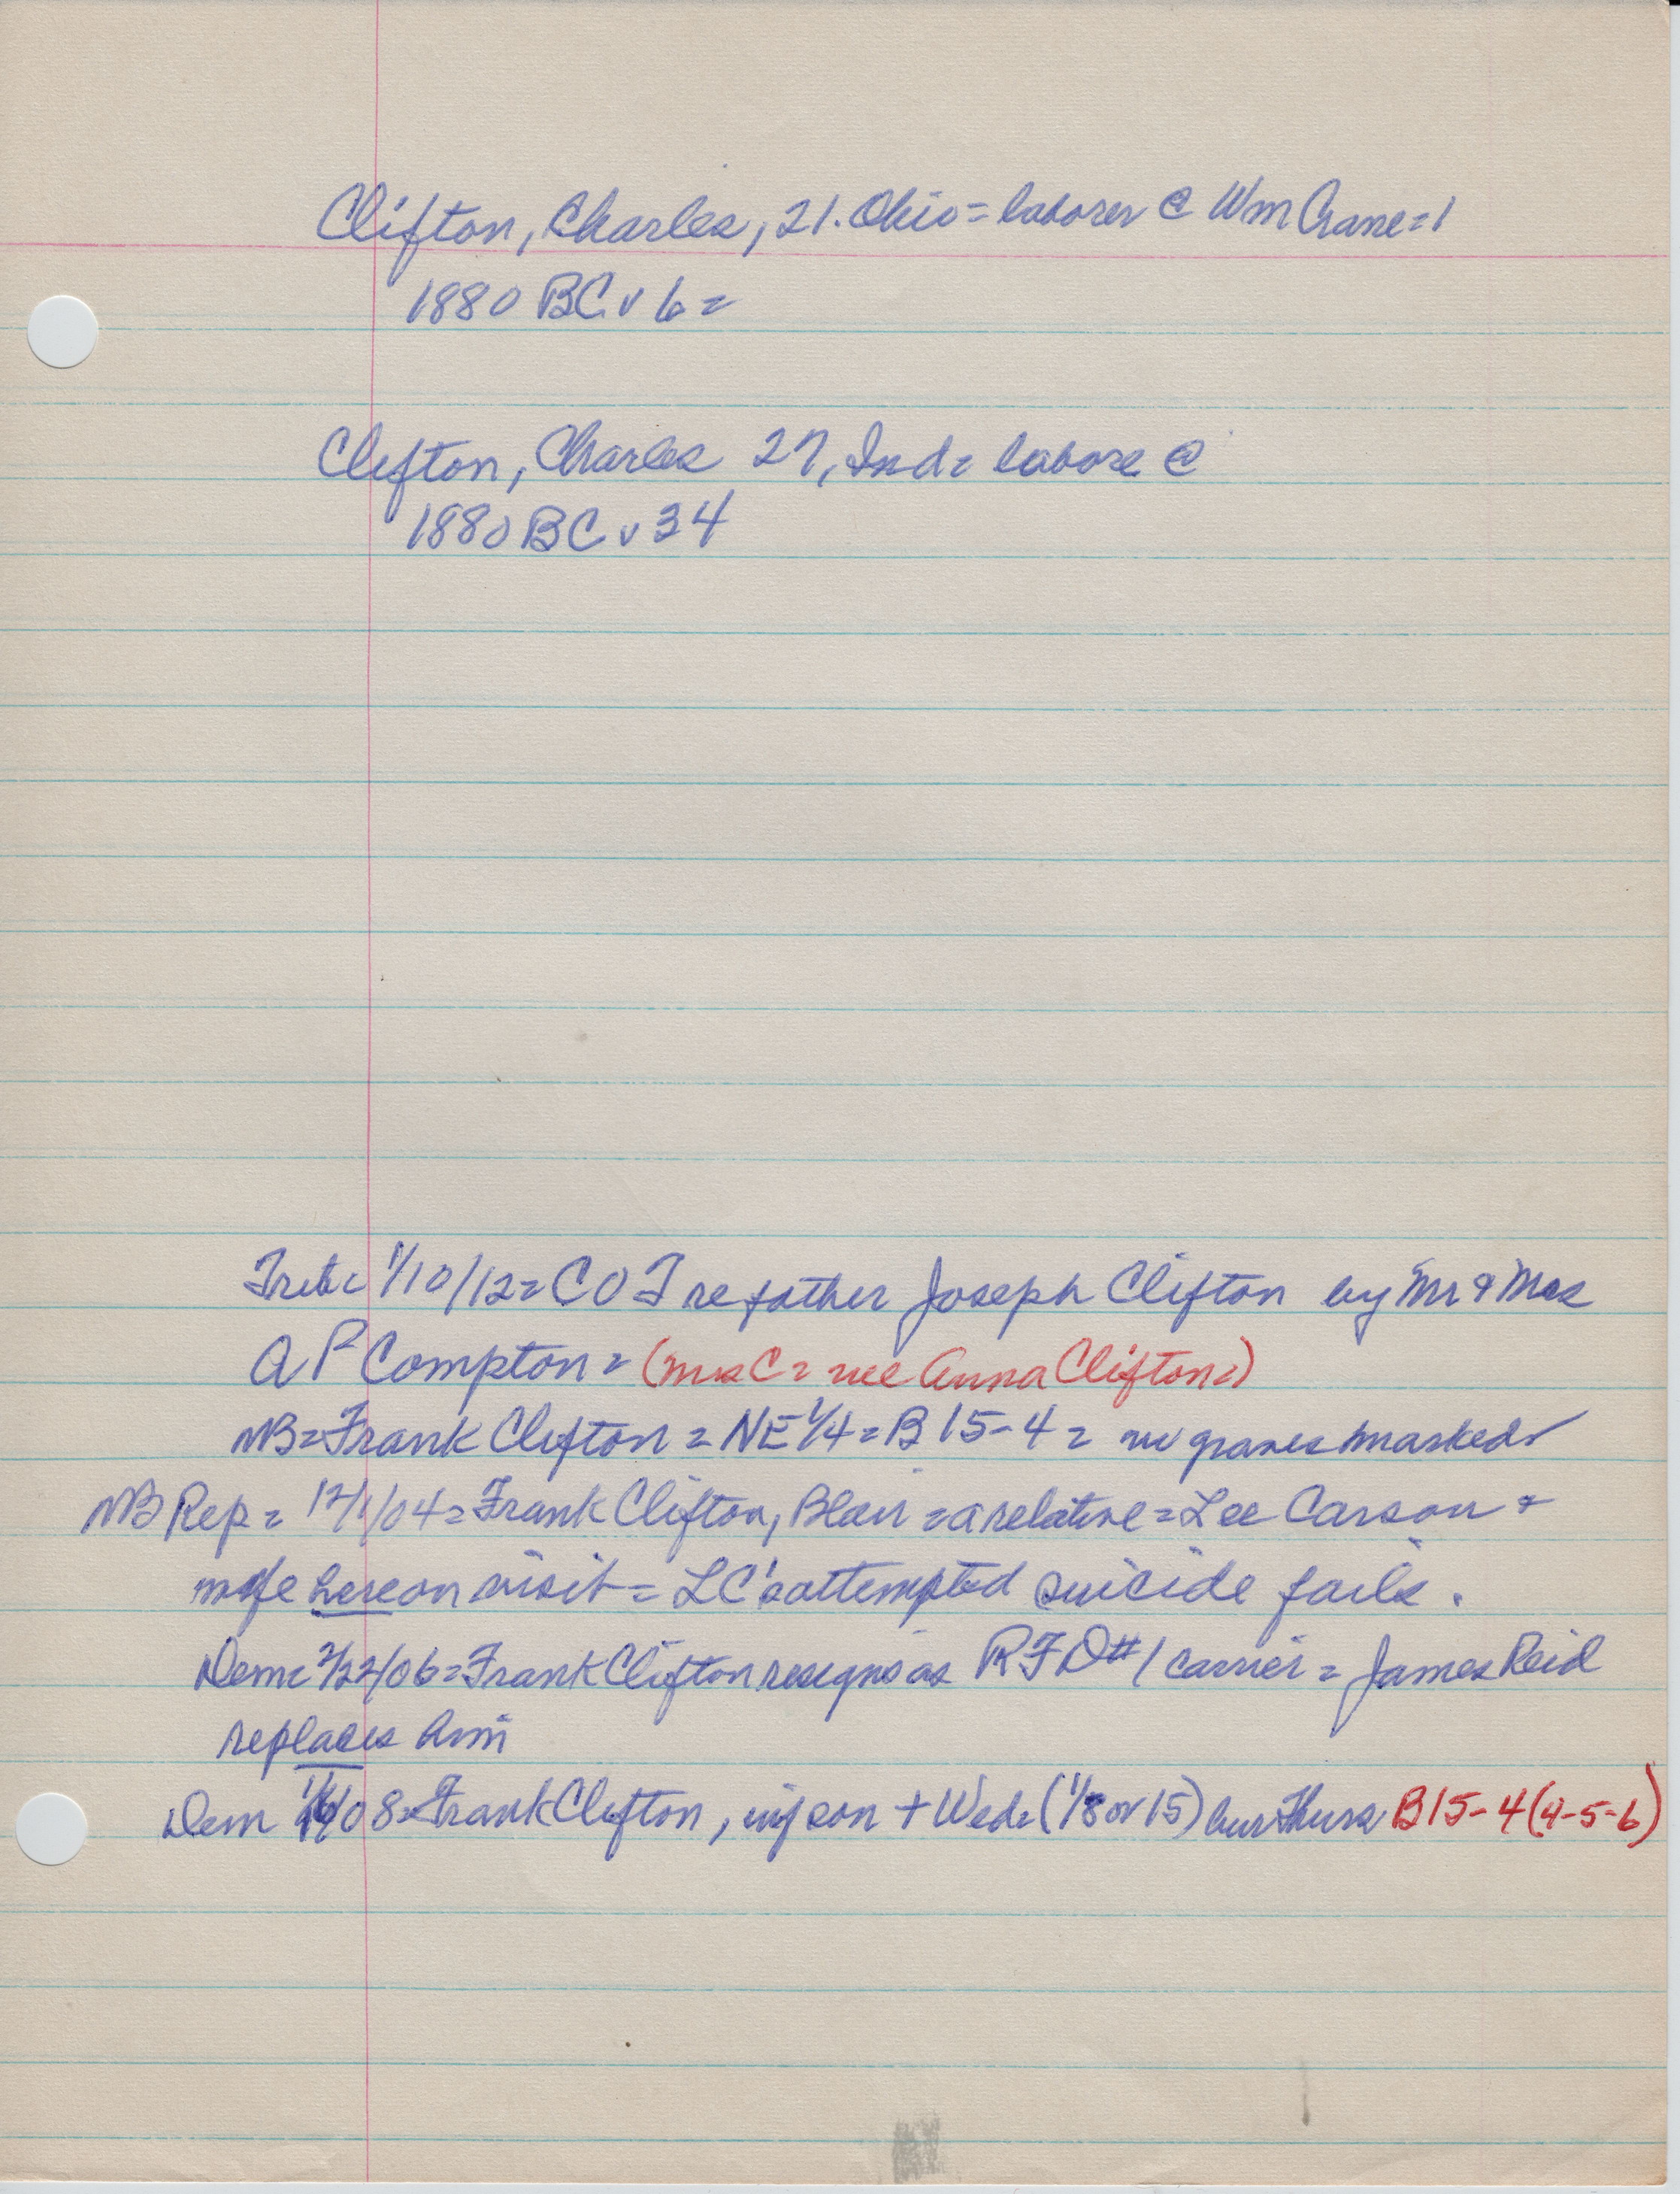 Clifton, Charles, 21. Ohio = laborer @ Wm Crane = 1
1880 BC v 6 =
Clifton, Charles 27, Ind = labore @
1880 BC v 34
Trib = 1/10/12 = COT re father Joseph Clifton by Mr & Mrs
A P Compton = (mrs C = nee Anna Clifton =)
NB = Frank Clifton = NE 1/4 = B 15-4 = no graves marked
NB Rep = 12/1/04 = Frank Clifton, Blair = a relative = Lee Carson +
wife here on visit = LC's attempted suicide fails.
Dem = 2/22/06 = Frank Clifton resigns as RFD #1 carrier = James Reid
replaces him
Dem /08 = Frank Clifton, inf son + Wed = (1/8 or 15) bur Thurs B 15-4 (4-5-6)